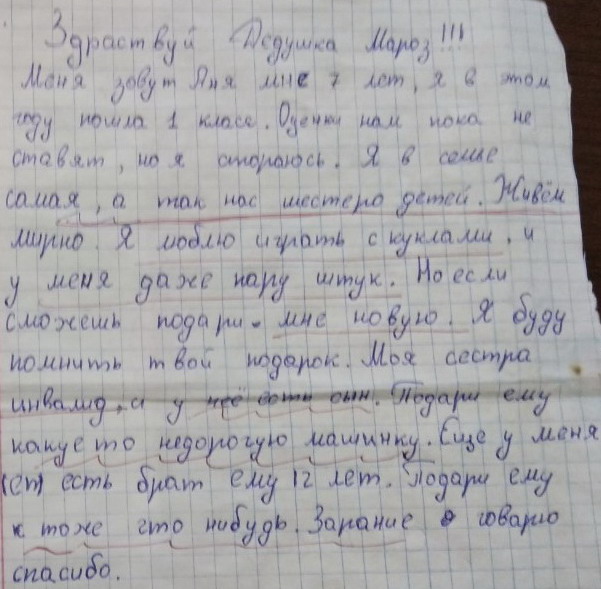 Здраствуй Дедушка Мароз!!!
Меня зовут Аня мне 7 лет, я в этом
году пошла 1 класс. Оценки нам пока не
ставят, но я стораюсь. Я в семье
самая, а так нас шестеро детей. Живём
мирно. Я люблю играть с куклами, и
у меня даже пару штук. Но если
сможешь подари мне новую. Я буду
помнить твой подарок. Моя сестра
инвалид, а у неё есть сын. Подари ему
какуе то недорогую машинку. Еще у меня
есть брат ему 12 лет. Подари ему
тоже что нибудь. Зарание говарю
спасибо.